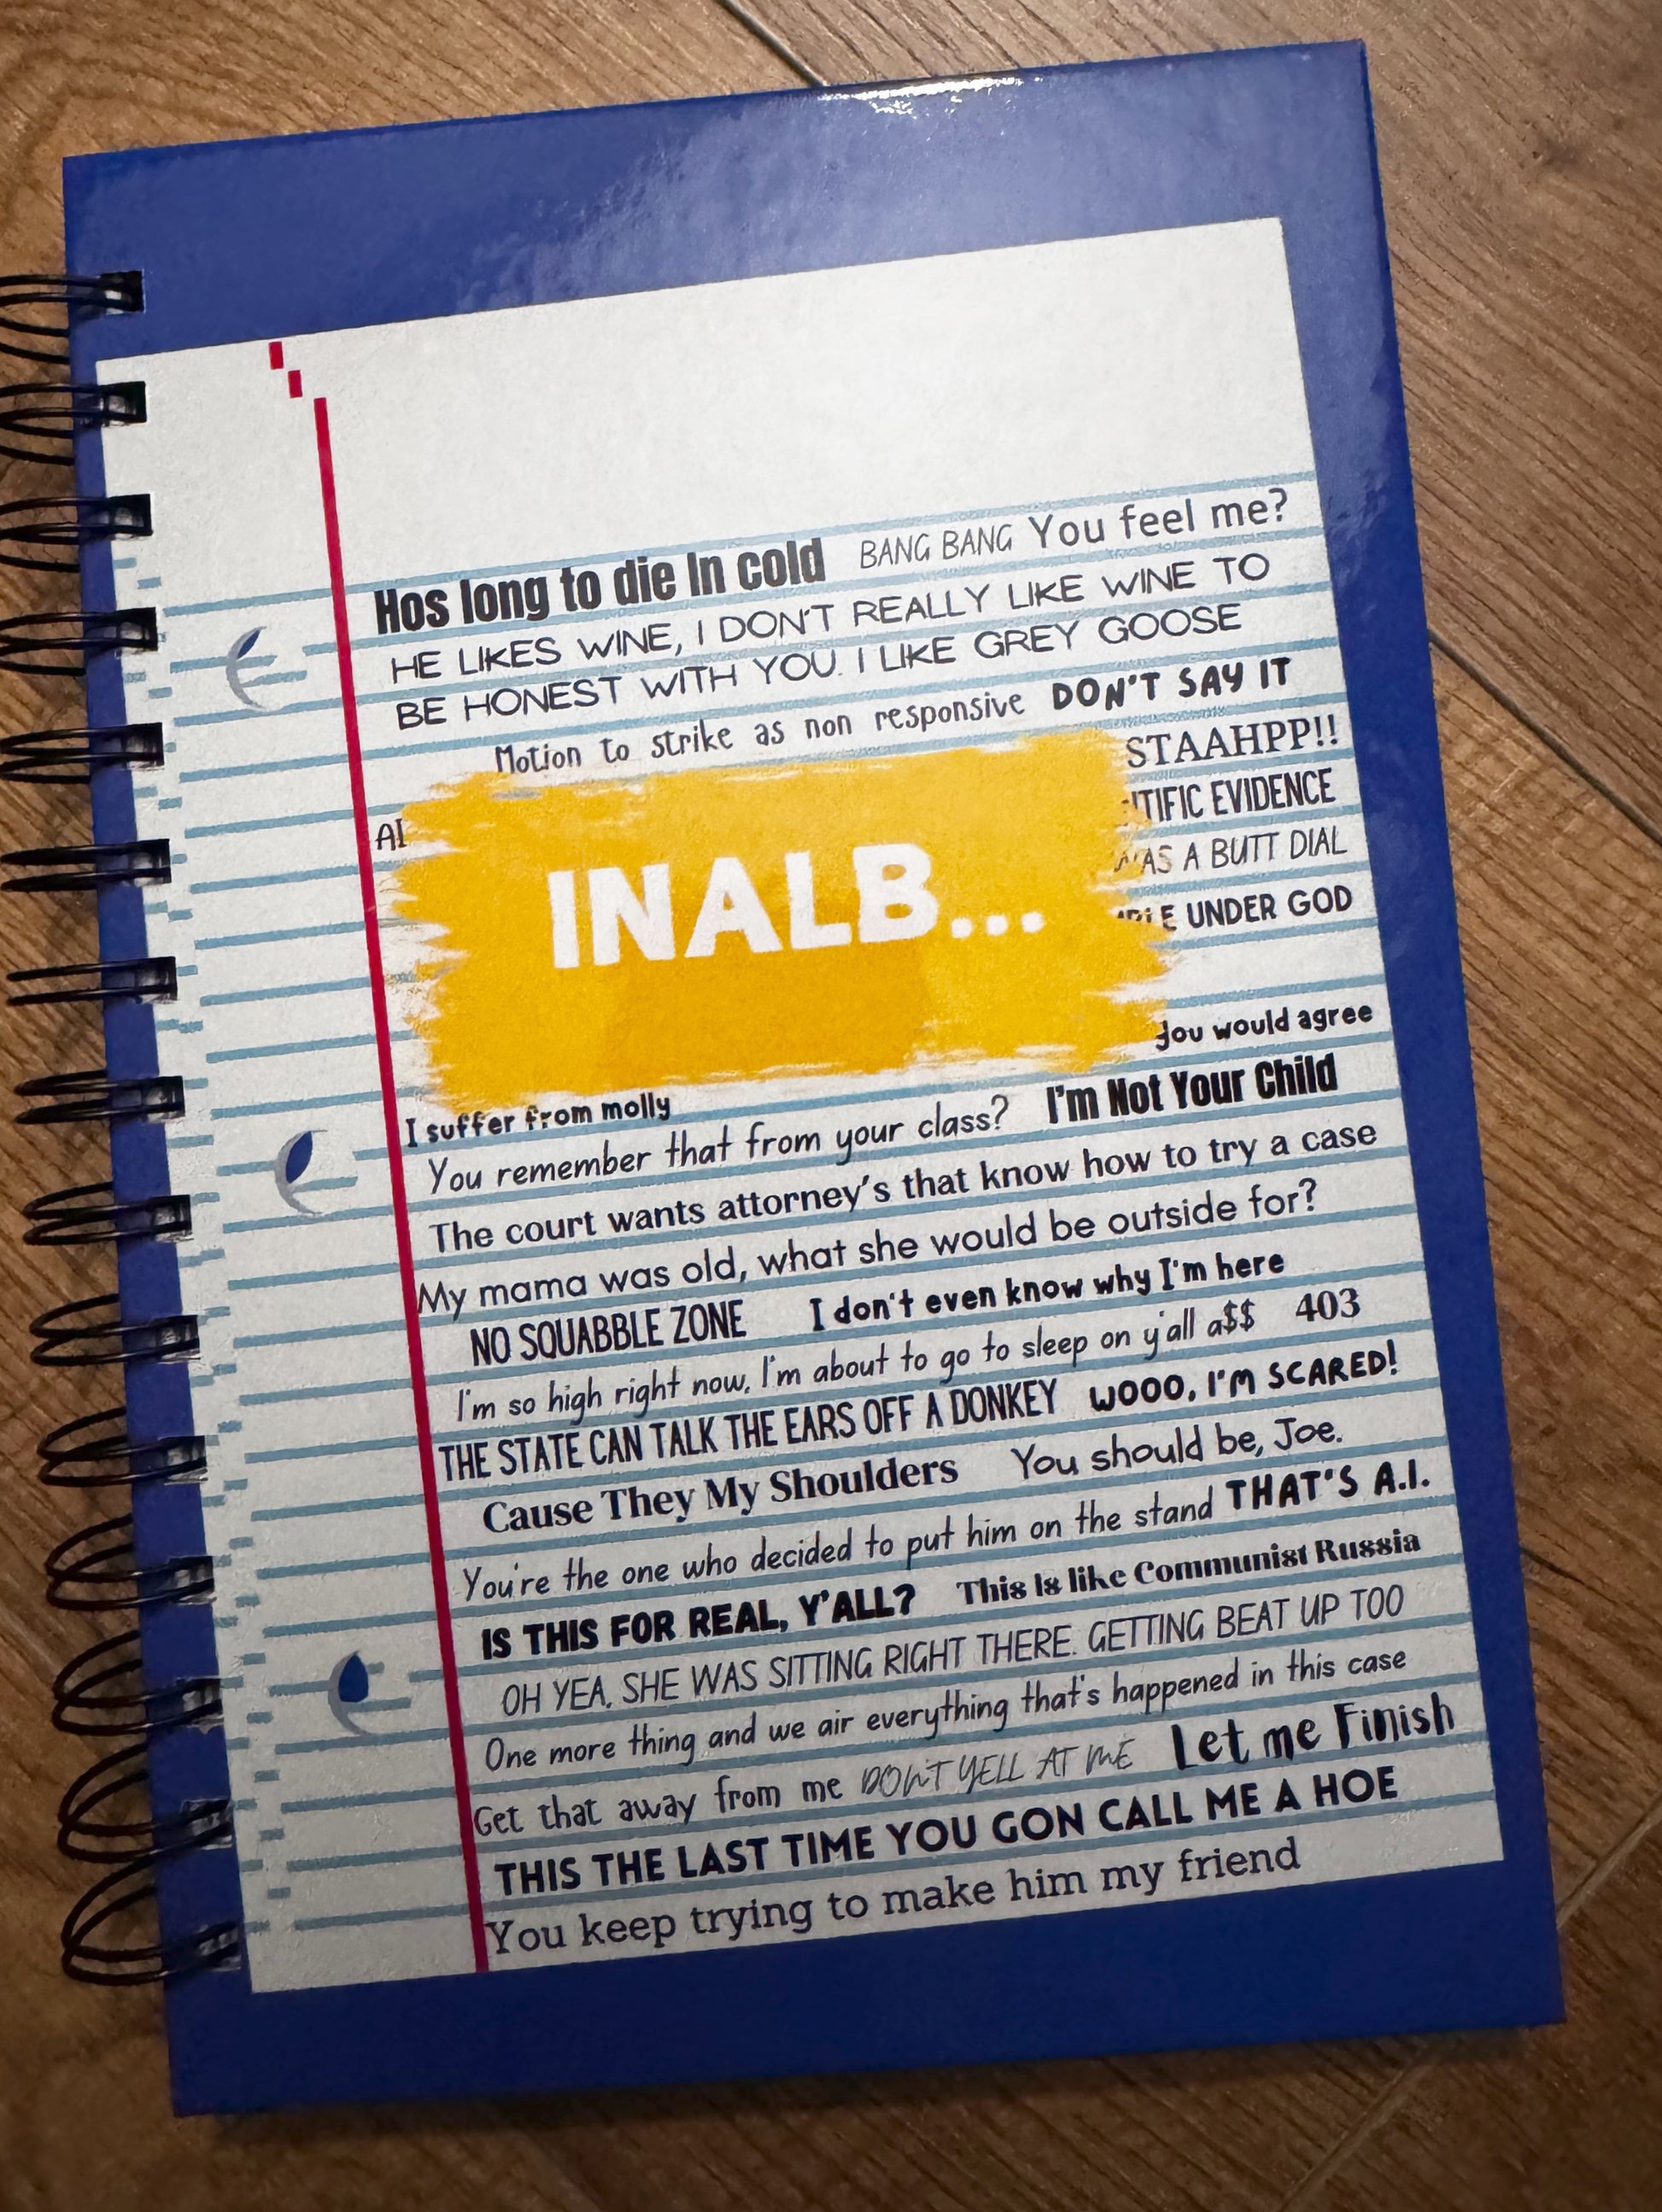 Hos long to die In cold BANG BANG You feel me?
HE LIKES WINE, I DON'T REALLY LIKE WINE TO
BE HONEST WITH YOU. I LIKE GREY GOOSE
Motion to strike as non responsive DON'T SAY IT
STAAHPP!!
EVIDENCE
AI
INALB...
WAS A BUTT DIAL
UNDER GOD
you would agree
I suffer from molly
You remember that from your class? I'm Not Your Child
The court wants attorney's that know how to try a case
My mama was old, what she would be outside for?
NO SQUABBLE ZONE I don't even know why I'm here
I'm so high right now, I'm about to go to sleep on y'all a$$ 403
THE STATE CAN TALK THE EARS OFF A DONKEY WOOO, I'M SCARED!
Cause They My Shoulders You should be, Joe.
You're the one who decided to put him on the stand THAT'S A.I.
IS THIS FOR REAL, Y'ALL? This Is like Communist Russia
OH YEA, SHE WAS SITTING RIGHT THERE. GETTING BEAT UP TOO
One more thing and we air everything that's happened in this case
Get that away from me DON'T YELL AT ME Let me Finish
THIS THE LAST TIME YOU GON CALL ME A HOE
You keep trying to make him my friend